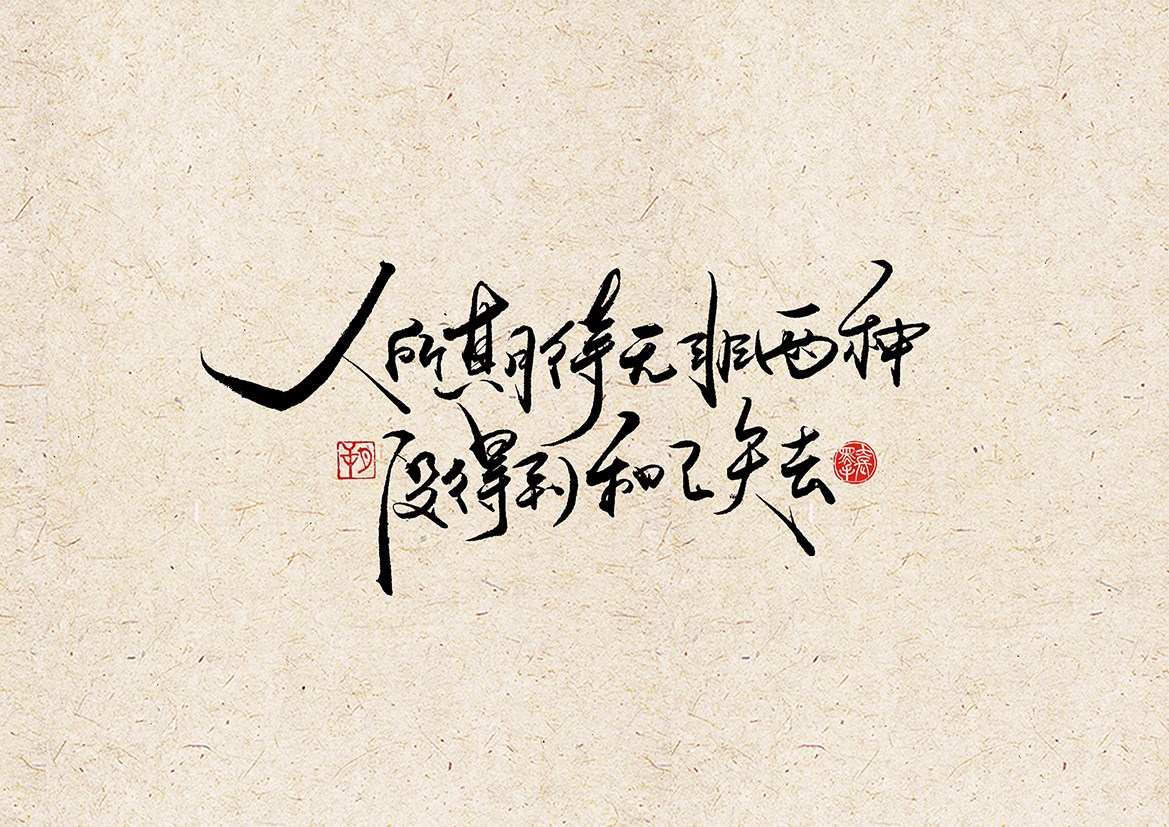 人所期待无非两种
没得到和已失去